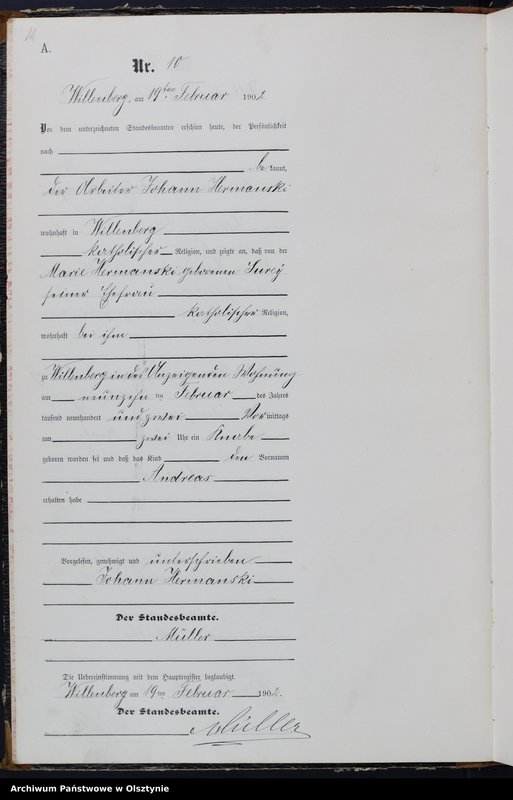 A.
Nr. 10
Willenberg, am 19ten Februar 1902.
Vor dem unterzeichneten Standesbeamten erschien heute, der Persönlichkeit
nach
be kannt,
der Arbeiter Johann Hermanski
wohnhaft in Willenberg
katholischer Religion, und zeigte an, daß von der
Marie Hermanski geborenen
seiner Ehefrau
katholischer Religion,
wohnhaft bei ihm
zu Willenberg in des Anzeigenden Wohnung
am neunzehn ten Februar des Jahres
tausend neunhundert und zwei Vor mittags
um zwei Uhr ein Knabe
geboren worden sei und daß das Kind den Vornamen
Andreas
erhalten habe
Vorgelesen, genehmigt und unterschrieben
Johann Hermanski
Der Standesbeamte.
Müller
Die Uebereinstimmung mit dem Hauptregister beglaubigt.
Willenberg am 19ten Februar 1902.
Der Standesbeamte.
Müller
Archiwum Państwowe w Olsztynie